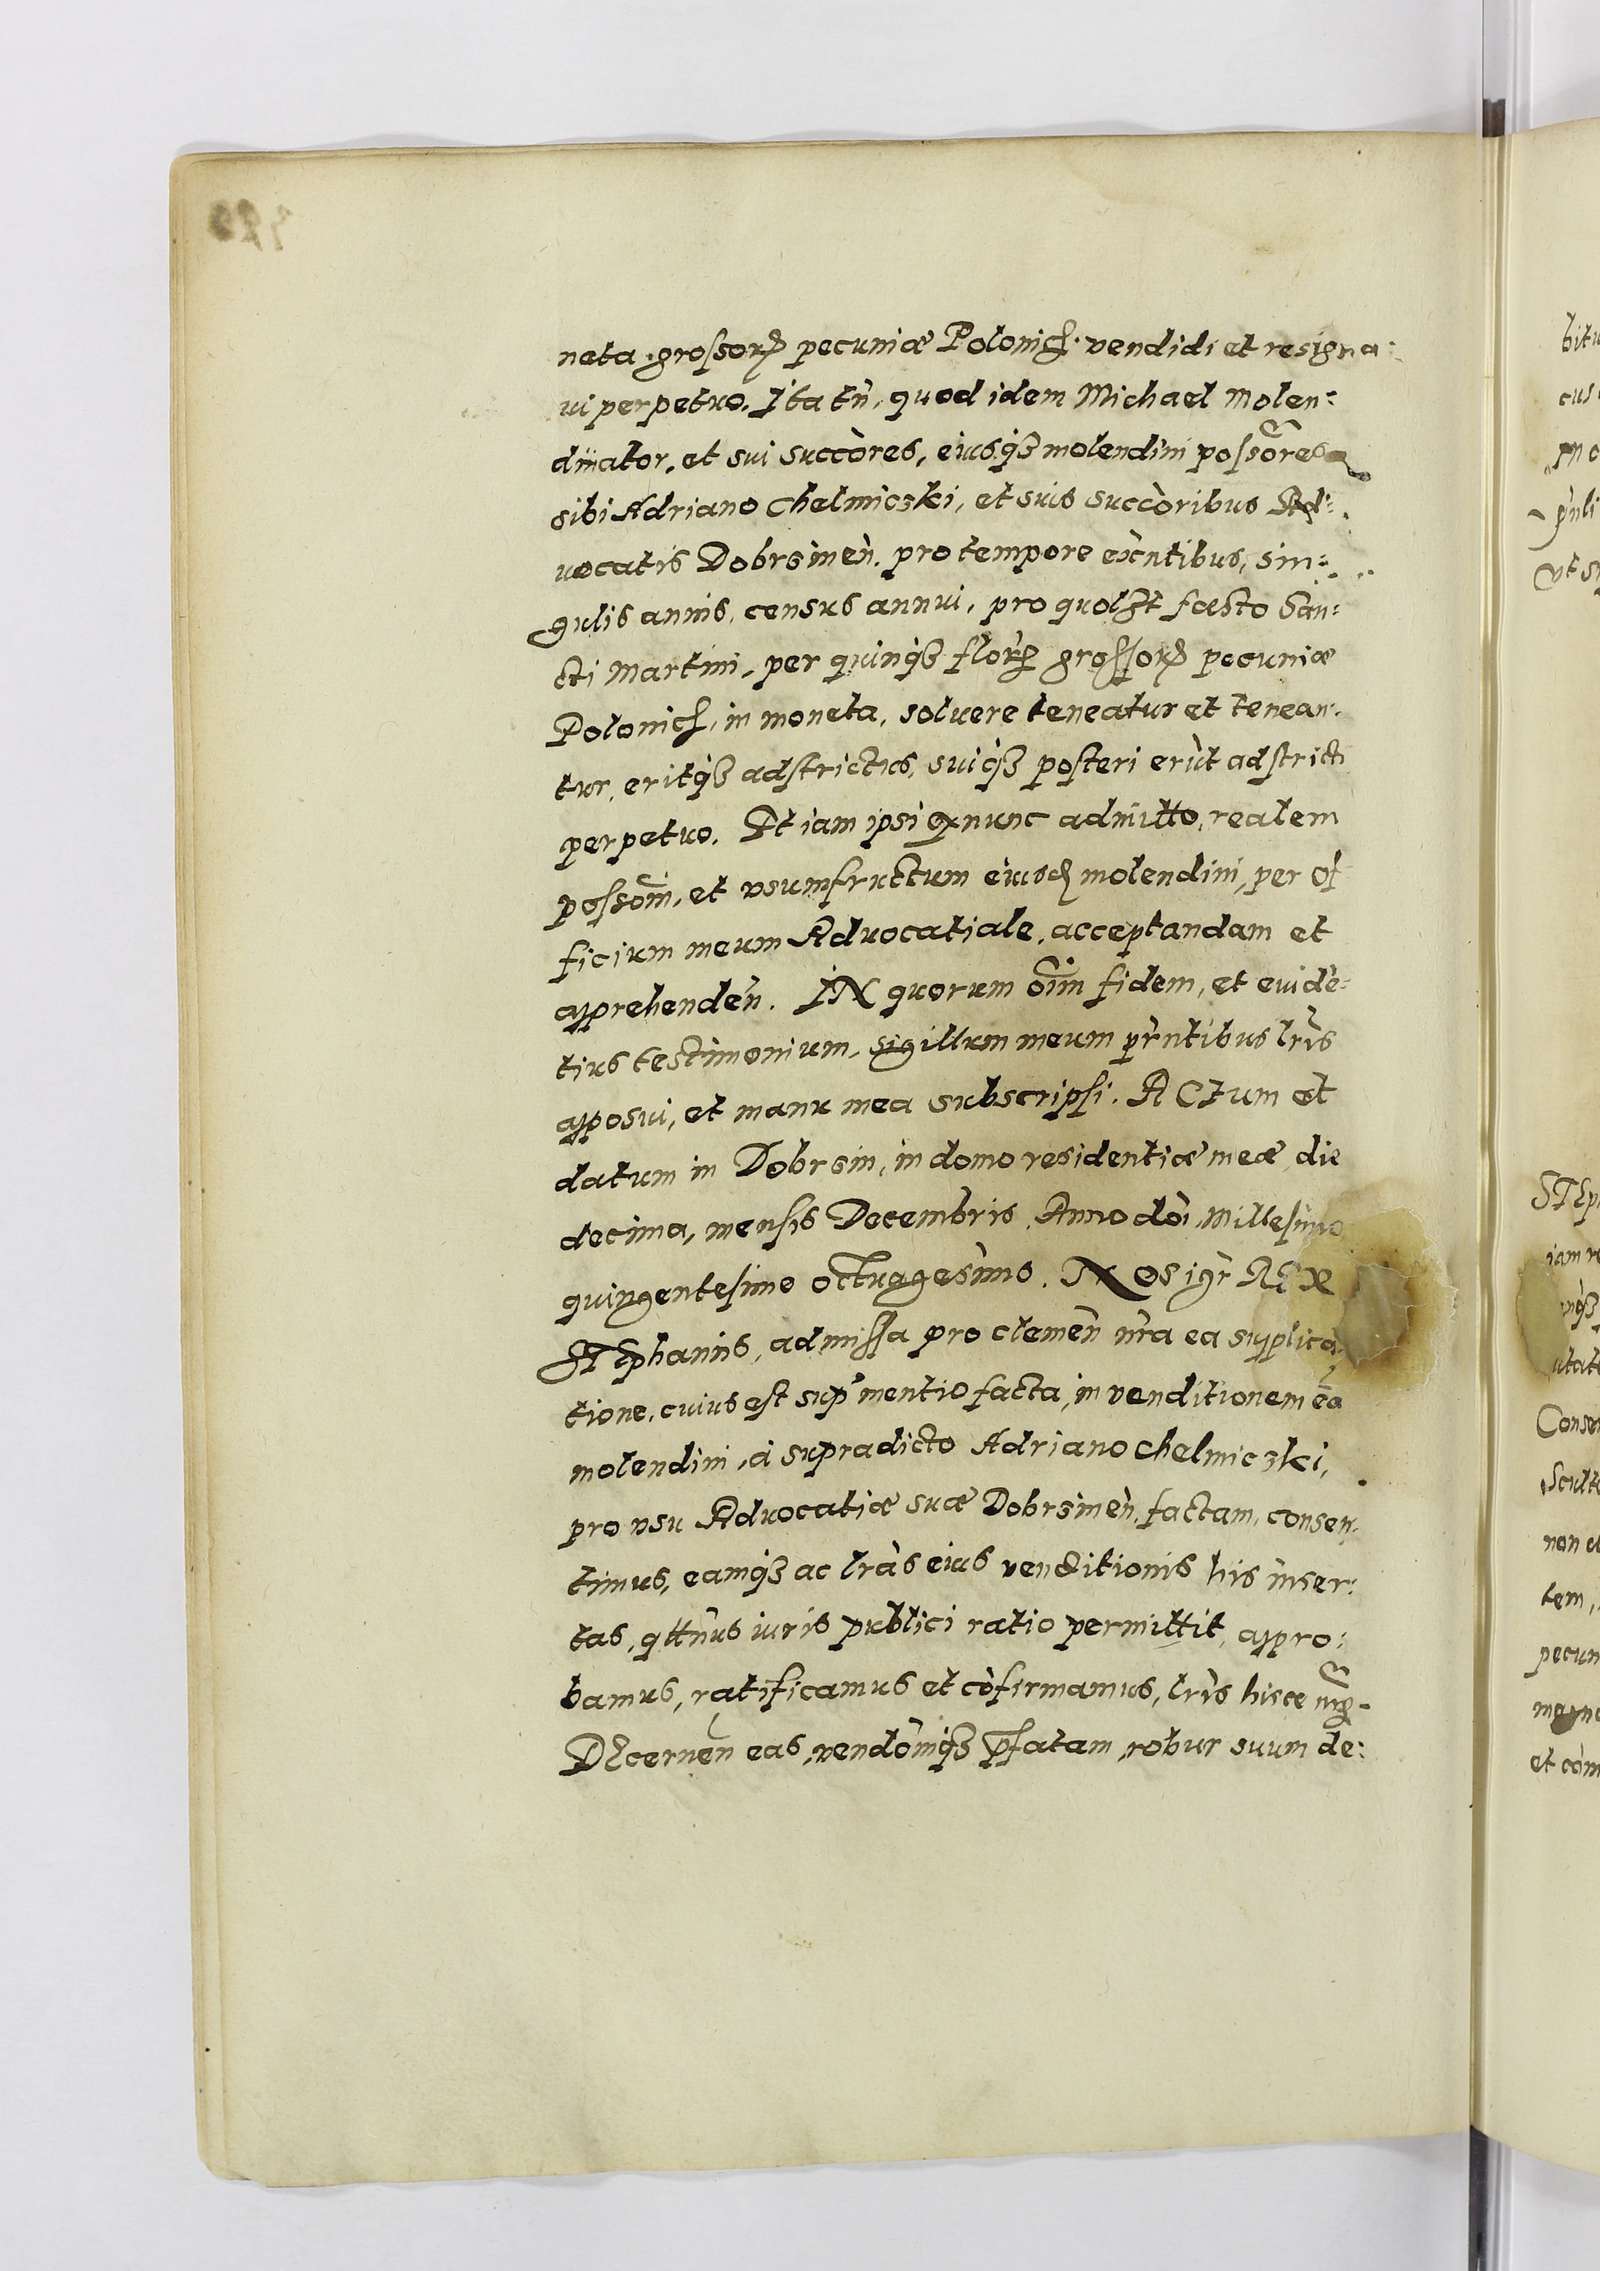 neta grossorꝝ pecuniæ Polonicꝭ vendidi et resigna:
ui perpetuo. Ita tñ, quod idem Michael Molen:
dinator, et sui succòres, eiusqꝫ molendini possores
sibi Adriano Chelmiczki, et suis succòribus Ad:
uocatis Dobrsineñ. pro tempore exñtibus, sin:
gulis annis, census annui, pro quolꝫt fæsto San:
cti Martini, per quinqꝫ florꝝ grossorꝝ pecuniæ
Polonicꝭ, in moneta, soluere teneatur et tenean.
tur, eritqꝫ adstrictus, suiqꝫ posteri erùt adstricti
perpetuo. Et iam ipsi ex nunc admitto, realem
possom̃, et vsumfructum eiusdꝫ molendini, per of
ficium meum Aduocatiale, acceptandam et
apprehendeñ. IN quorum om̃ fidem, et euidè:
tius testimonium, sigillum meum pr̃ntibus lr̃is
apposui, et manu mea subscripsi. ACTum et
datum in Dobrsin, in domo residentiæ meæ, die
decima, mensis Decembris, Anno doi Millesimo
quingentesimo octuagesimo. NOs igr̃ REX
STEphanus, admissa pro clemeñ nr̃a ea supplica
tione, cuius est sup̃ mentio facta, in venditionem ea
molendini, à supradicto Adriano Chelmiczki,
pro vsu Aduocatiæ suæ Dobrsineñ, factam, consen,
timus, eamqꝫ ac lr̃as eius venditionis his inser:
tas, qttñus iuris publici ratio permittit, appro:
bamus, ratificamus et còfirmamus, lr̃is hisce nr̃is.
DEcerneñ eas, vendòmqꝫ p̃fatam, robur suum de:
bitu
Consen
non et
tem,
pecun
et com